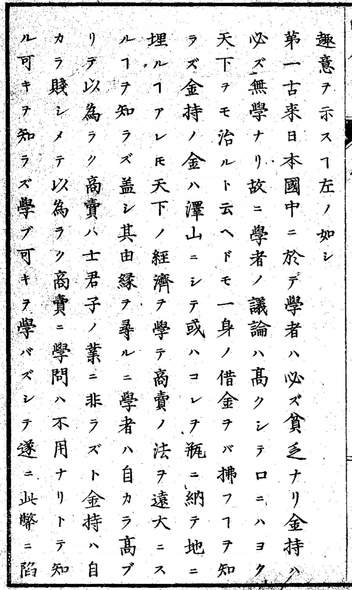 趣意ヲ示スヿ左ノ如シ
第一古来日本國中ニ於テ學者ハ必ズ貧乏ナリ金持ハ
必ズ無學ナリ故ニ學者ノ議論ハ髙クシテ口ニハヨク
天下ヲモ治ルト云ヘドモ一身ノ借金ヲバ拂フヿヲ知
ラズ金持ノ金ハ澤山ニシテ或ハコレヲ瓶ニ納テ地ニ
埋ルヿアレ𪜈天下ノ經濟ヲ學テ商賣ノ法ヲ遠大ニス
ルヿヲ知ラズ盖シ其由縁ヲ尋ルニ學者ハ自カラ髙ブ
リテ以為ラク商賣ハ士君子ノ業ニ非ラズト金持ハ自
カラ賤シメテ以為ラク商賣ニ學問ハ不用ナリトテ知
ル可キヲ知ラズ學ブ可キヲ學バズシテ遂ニ此弊ニ陷